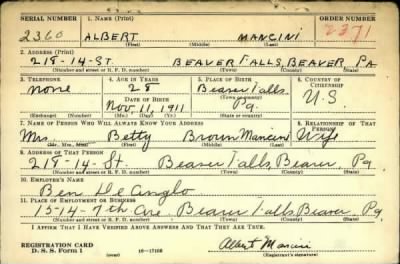 SERIAL NUMBER 1. NAME (Print) ORDER NUMBER
2360 ALBERT MANCINI 2371
(First) (Middle) (Last)
2. ADDRESS (Print)
218-14-ST. BEAVER FALLS, BEAVER PA
(Number and street or R. F. D. number) (Town) (County) (State)
3. TELEPHONE 4. AGE IN YEARS 5. PLACE OF BIRTH 6. COUNTRY OF CITIZENSHIP
none 28 Beaver Falls
DATE OF BIRTH (Town or county)
Nov, 11, 1911 Pa. U.S.
(Exchange) (Number) (Mo.) (Day) (Yr.) (State or country)
7. NAME OF PERSON WHO WILL ALWAYS KNOW YOUR ADDRESS 8. RELATIONSHIP OF THAT PERSON
Mrs. Betty Brown Mancini Wife
(Mr., Mrs., Miss) (First) (Middle) (Last)
9. ADDRESS OF THAT PERSON
218-14-St. Beaver Falls, Beaver, Pa
(Number and street or R. F. D. number) (Town) (County) (State)
10. EMPLOYER'S NAME
Ben De Anglo
11. PLACE OF EMPLOYMENT OR BUSINESS
1514-7th Ave, Beaver Falls, Beaver, Pa
(Number and street or R. F. D. number) (Town) (County) (State)
I AFFIRM THAT I HAVE VERIFIED ABOVE ANSWERS AND THAT THEY ARE TRUE.
REGISTRATION CARD
D. S. S. Form 1 (over) 16-17105 Albert Mancini
(Registrant's signature)